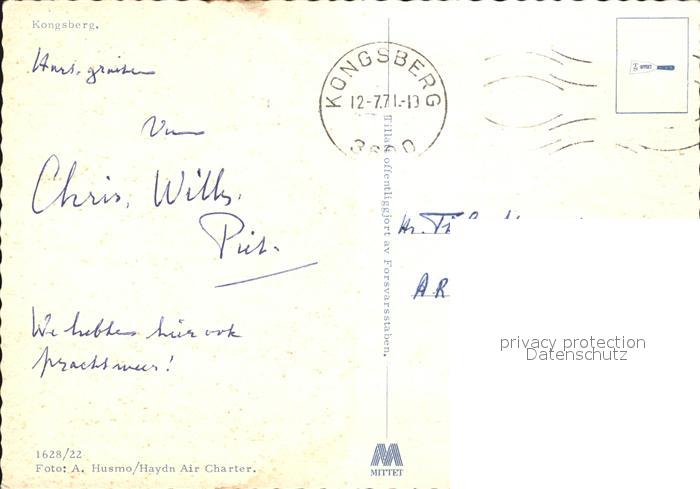 Kongsberg.
Hart. groeten
Van
Chris, Willy,
Piet.
We hebben hier ook
prachtweer!
1628/22
Foto: A. Husmo/Haydn Air Charter.
Tillatt offentliggjort av Forsvarsstaben.
MITTET
KONGSBERG
12-7.71.-13
Hr.
AR
privacy protection
Datenschutz